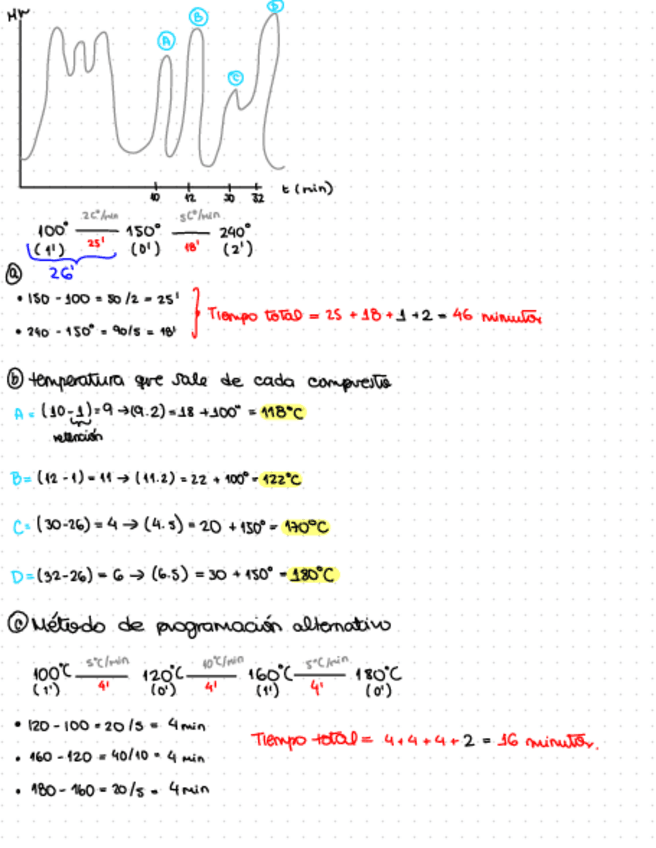 Hw
A
B
C
D
10 12 30 32 t (min)
2C°/min 5C°/min
100° 150° 240°
25' 18'
(1') (0') (2')
26'
a
• 150 - 100 = 50 /2 = 25'
Tiempo total = 25 + 18 + 1 + 2 = 46 minutos
• 240 - 150° = 90/5 = 18'
b temperatura que sale de cada compuesto
A = (10 - 1) = 9 → (9.2) = 18 + 100° = 118°C
retención
B = (12 - 1) = 11 → (11.2) = 22 + 100° = 122°C
C = (30-26) = 4 → (4.5) = 20 + 150° = 170°C
D = (32-26) = 6 → (6.5) = 30 + 150° = 180°C
c Método de programación alternativo
5°C/min 10°C/min 5°C/min
100°C 120°C 160°C 180°C
4' 4' 4'
(1') (0') (1') (0')
• 120 - 100 = 20 /5 = 4 min
Tiempo total = 4 + 4 + 4 + 2 = 16 minutos.
• 160 - 120 = 40/10 = 4 min
• 180 - 160 = 20/5 = 4 min